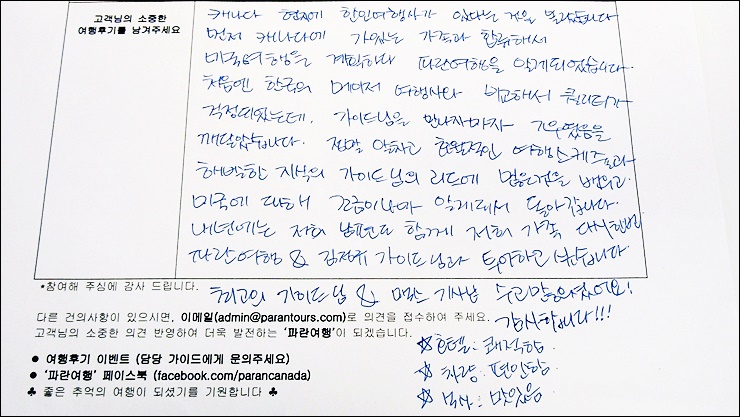 고객님의 소중한
여행후기를 남겨주세요
캐나다 현지에 한인여행사가 있다는 것을 몰랐습니다
먼저 캐나다에 가있는 가족과 합류해서
미국여행을 계획하다 파란여행을 알게되었습니다.
처음엔 한국의 메이저 여행사와 비교해서 퀄리티가
걱정되었는데, 가이드님을 만나자마자 기우였음을
깨달았습니다. 정말 알차고 환상적인 여행스케줄과
해박한 지식의 가이드님의 리드에 많은것을 배우고
미국에 대해 조금이나마 알게되서 돌아갑니다.
내년에는 저희 남편도 함께 저희 가족 다시한번
파란여행 & 김정규 가이드님과 투어하고 싶습니다.
*참여해 주심에 감사 드립니다.
최고인 가이드님 & 기사님 수고많으셨어요!
다른 건의사항이 있으시면, 이메일(admin@parantours.com)로 의견을 접수하여 주세요.
감사합니다!!!
고객님의 소중한 의견 반영하여 더욱 발전하는 '파란여행'이 되겠습니다.
☆호텔: 쾌적함
● 여행후기 이벤트 (담당 가이드에게 문의주세요)
☆차량: 편안함
● '파란여행' 페이스북 (facebook.com/parancanada)
☆식사: 맛있음
♣ 좋은 추억의 여행이 되셨기를 기원합니다 ♣